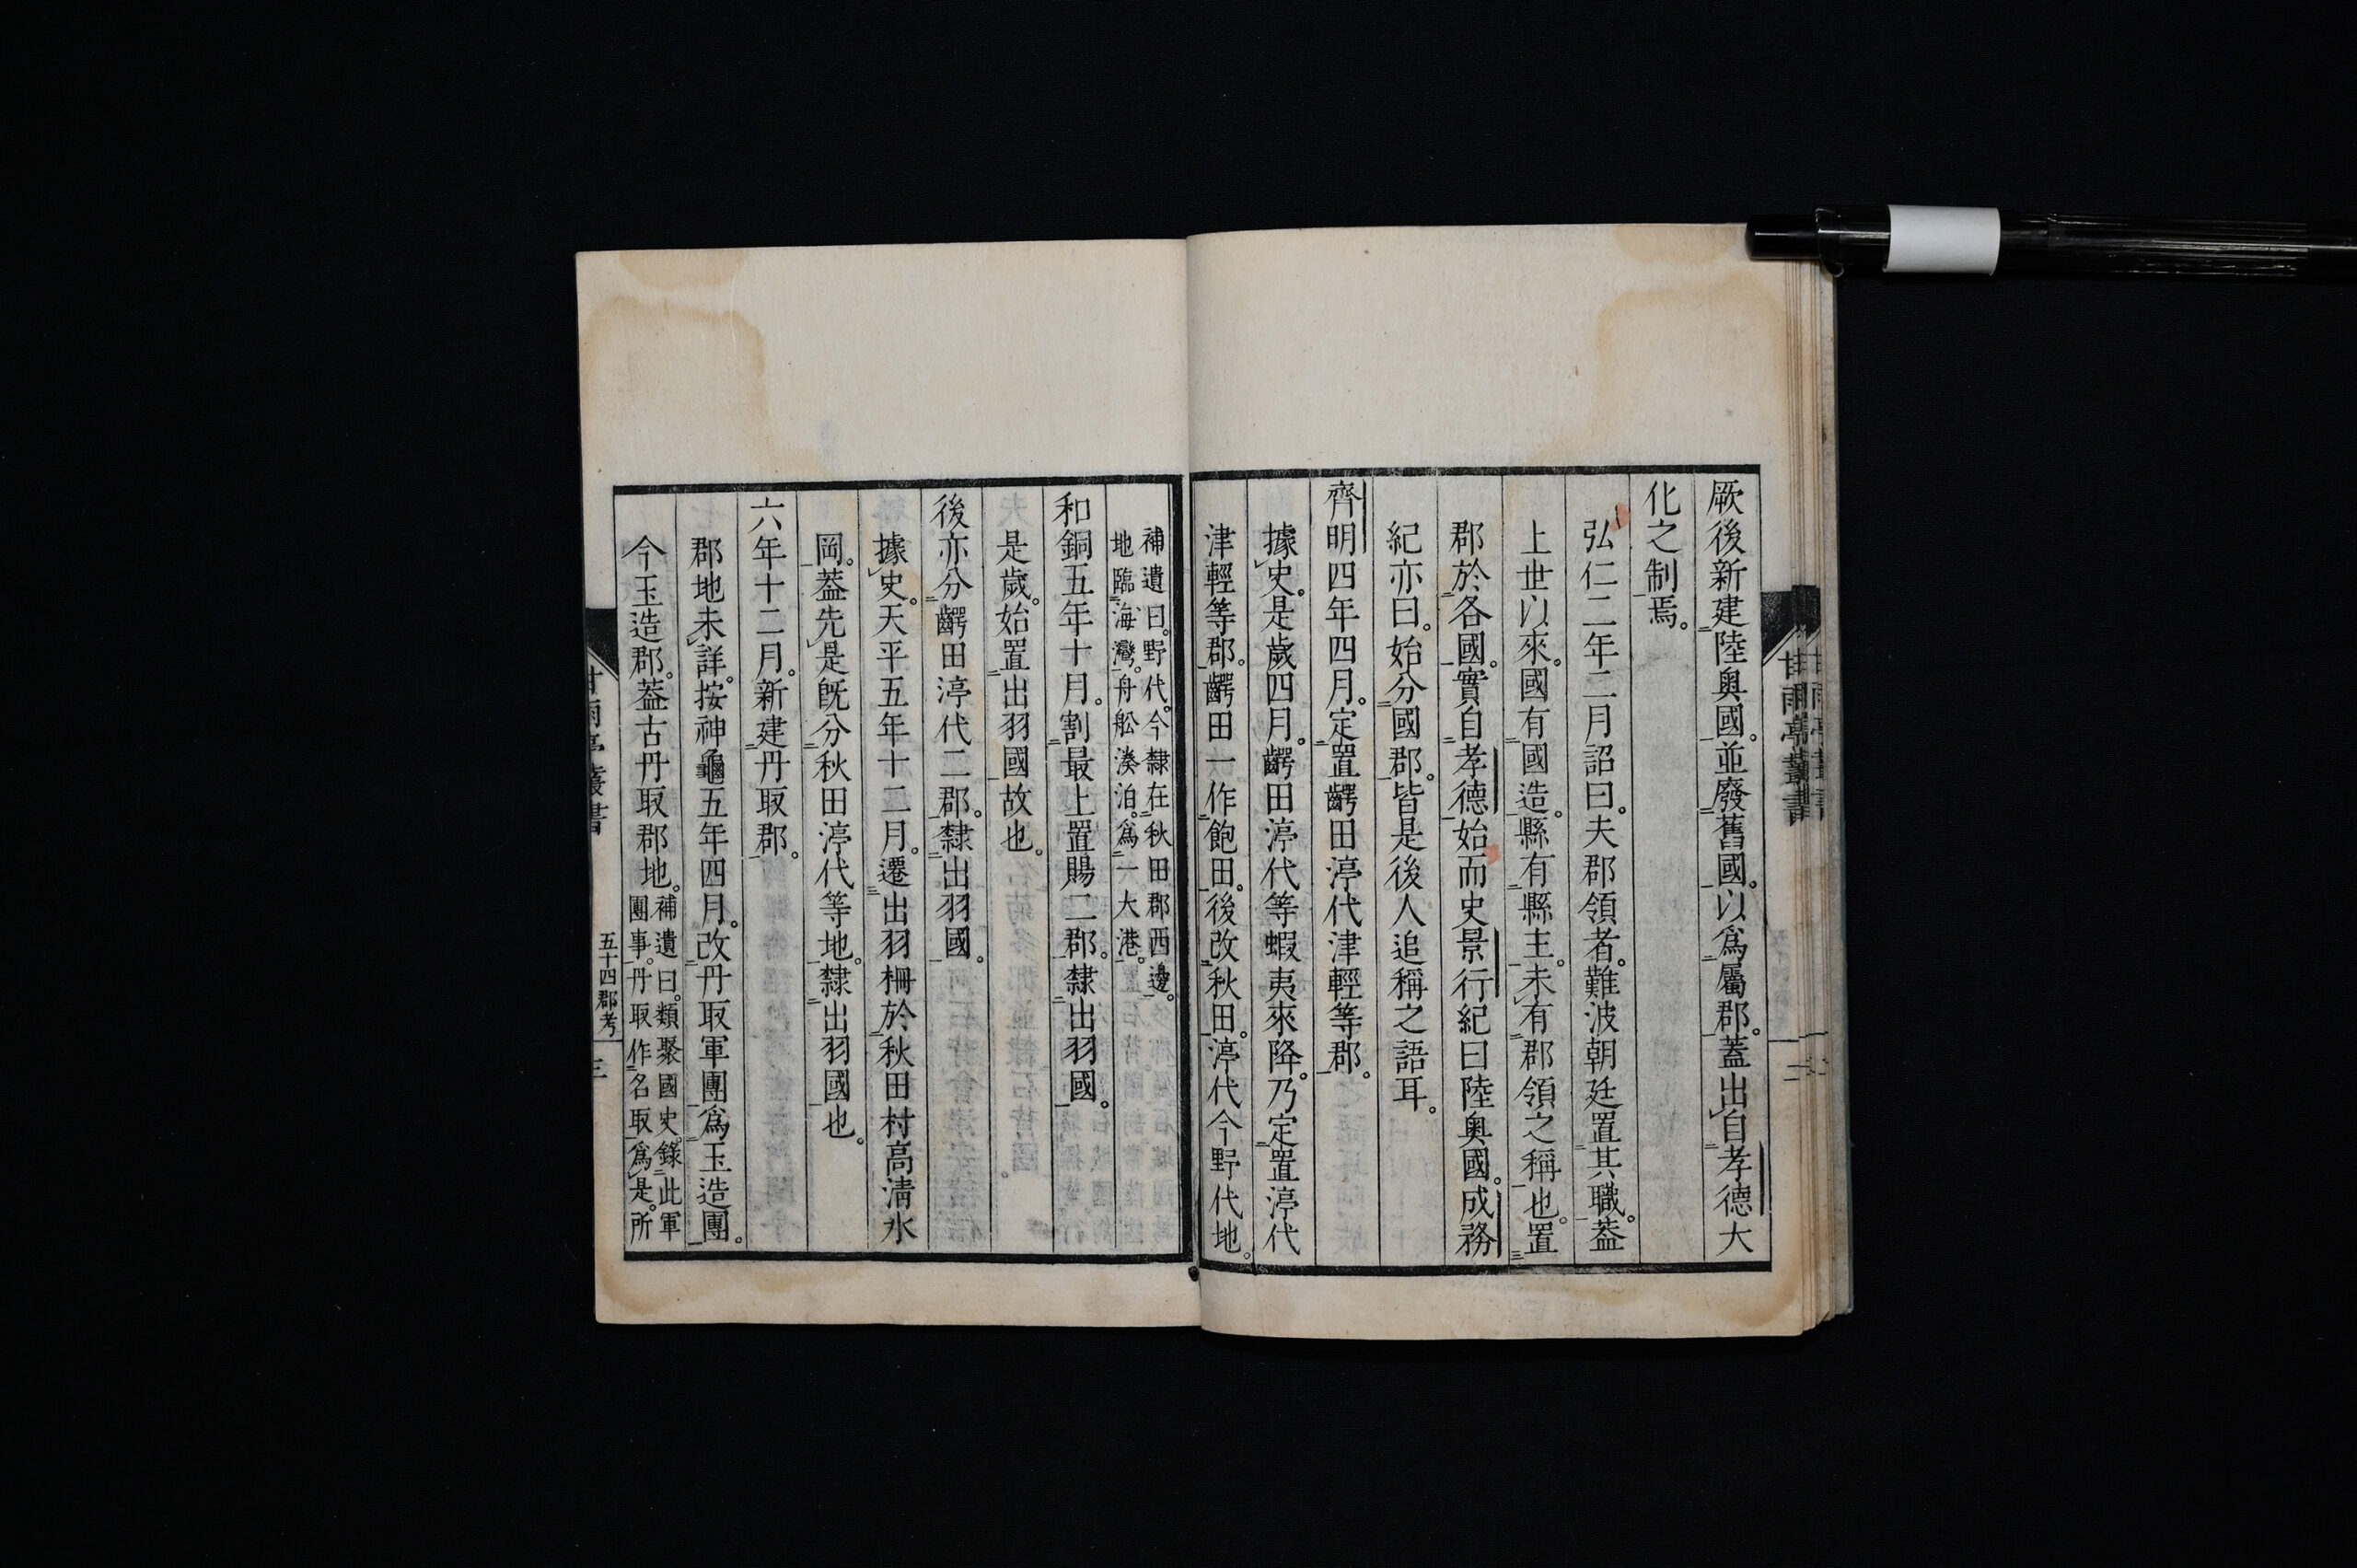 厥後新建陸奥國。並廢舊國。以爲屬郡。蓋出自孝德大
化之制焉。
弘仁二年二月詔曰。夫郡領者。難波朝廷置其職。蓋
上世以來。國有國造。縣有縣主。未有郡領之稱也。置
郡於各國。實自孝德始而史景行紀曰陸奥國。成務
紀亦曰。始分國郡。皆是後人追稱之語耳。
齊明四年四月。定置齶田渟代津輕等郡。
據史。是歲四月。齶田渟代等蝦夷來降。乃定置渟代
津輕等郡。齶田一作飽田。後改秋田。渟代今野代地。
補遺曰。野代。今隸在秋田郡西邊。
地臨海灣。舟舩湊泊。爲一大港。
和銅五年十月。割最上置賜二郡。隸出羽國。
是歲。始置出羽國故也。
後亦分齶田渟代二郡。隸出羽國。
據史。天平五年十二月。遷出羽柵於秋田村高清水
岡。蓋先是既分秋田渟代等地。隸出羽國也。
六年十二月。新建丹取郡。
郡地未詳。按神龜五年四月。改丹取軍團爲玉造團。
今玉造郡。蓋古丹取郡地。補遺曰。類聚國史。錄此軍
團事。丹取作名取爲是。所
甘雨亭叢書
五十四郡考
三
甘雨亭叢書